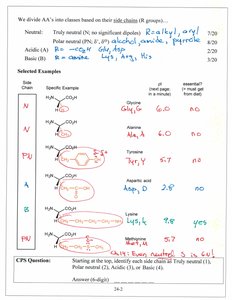 We divide AA's into classes based on their side chains (R groups)…
Neutral: Truly neutral (N; no significant dipoles) R=alkyl, aryl 7/20
Polar neutral (PN; δ⁺, δ⁻) alcohol, amine, pyrrole 8/20
Acidic (A) R= -CO₂H Glu, Asp 2/20
Basic (B) R= amine Lys, Arg, His 3/20
Selected Examples
Side Chain
Specific Example
pI (next page, in a minute)
essential? (= must get from diet)
N H₂N CO₂H Glycine Gly, G 6.0 no
N H₂N CO₂H Alanine Ala, A 6.0 no
PN H₂N CO₂H Tyrosine Tyr, Y 5.7 no
A H₂N CO₂H Aspartic acid Asp, D 2.8 no
B H₂N CO₂H Lysine Lys, K 9.8 yes
PN H₂N CO₂H Methionine Met, M 5.7 no
CPS Question: Starting at the top, identify each side chain as Truly neutral (1), Polar neutral (2), Acidic (3), or Basic (4).
Answer (6-digit)
24-2